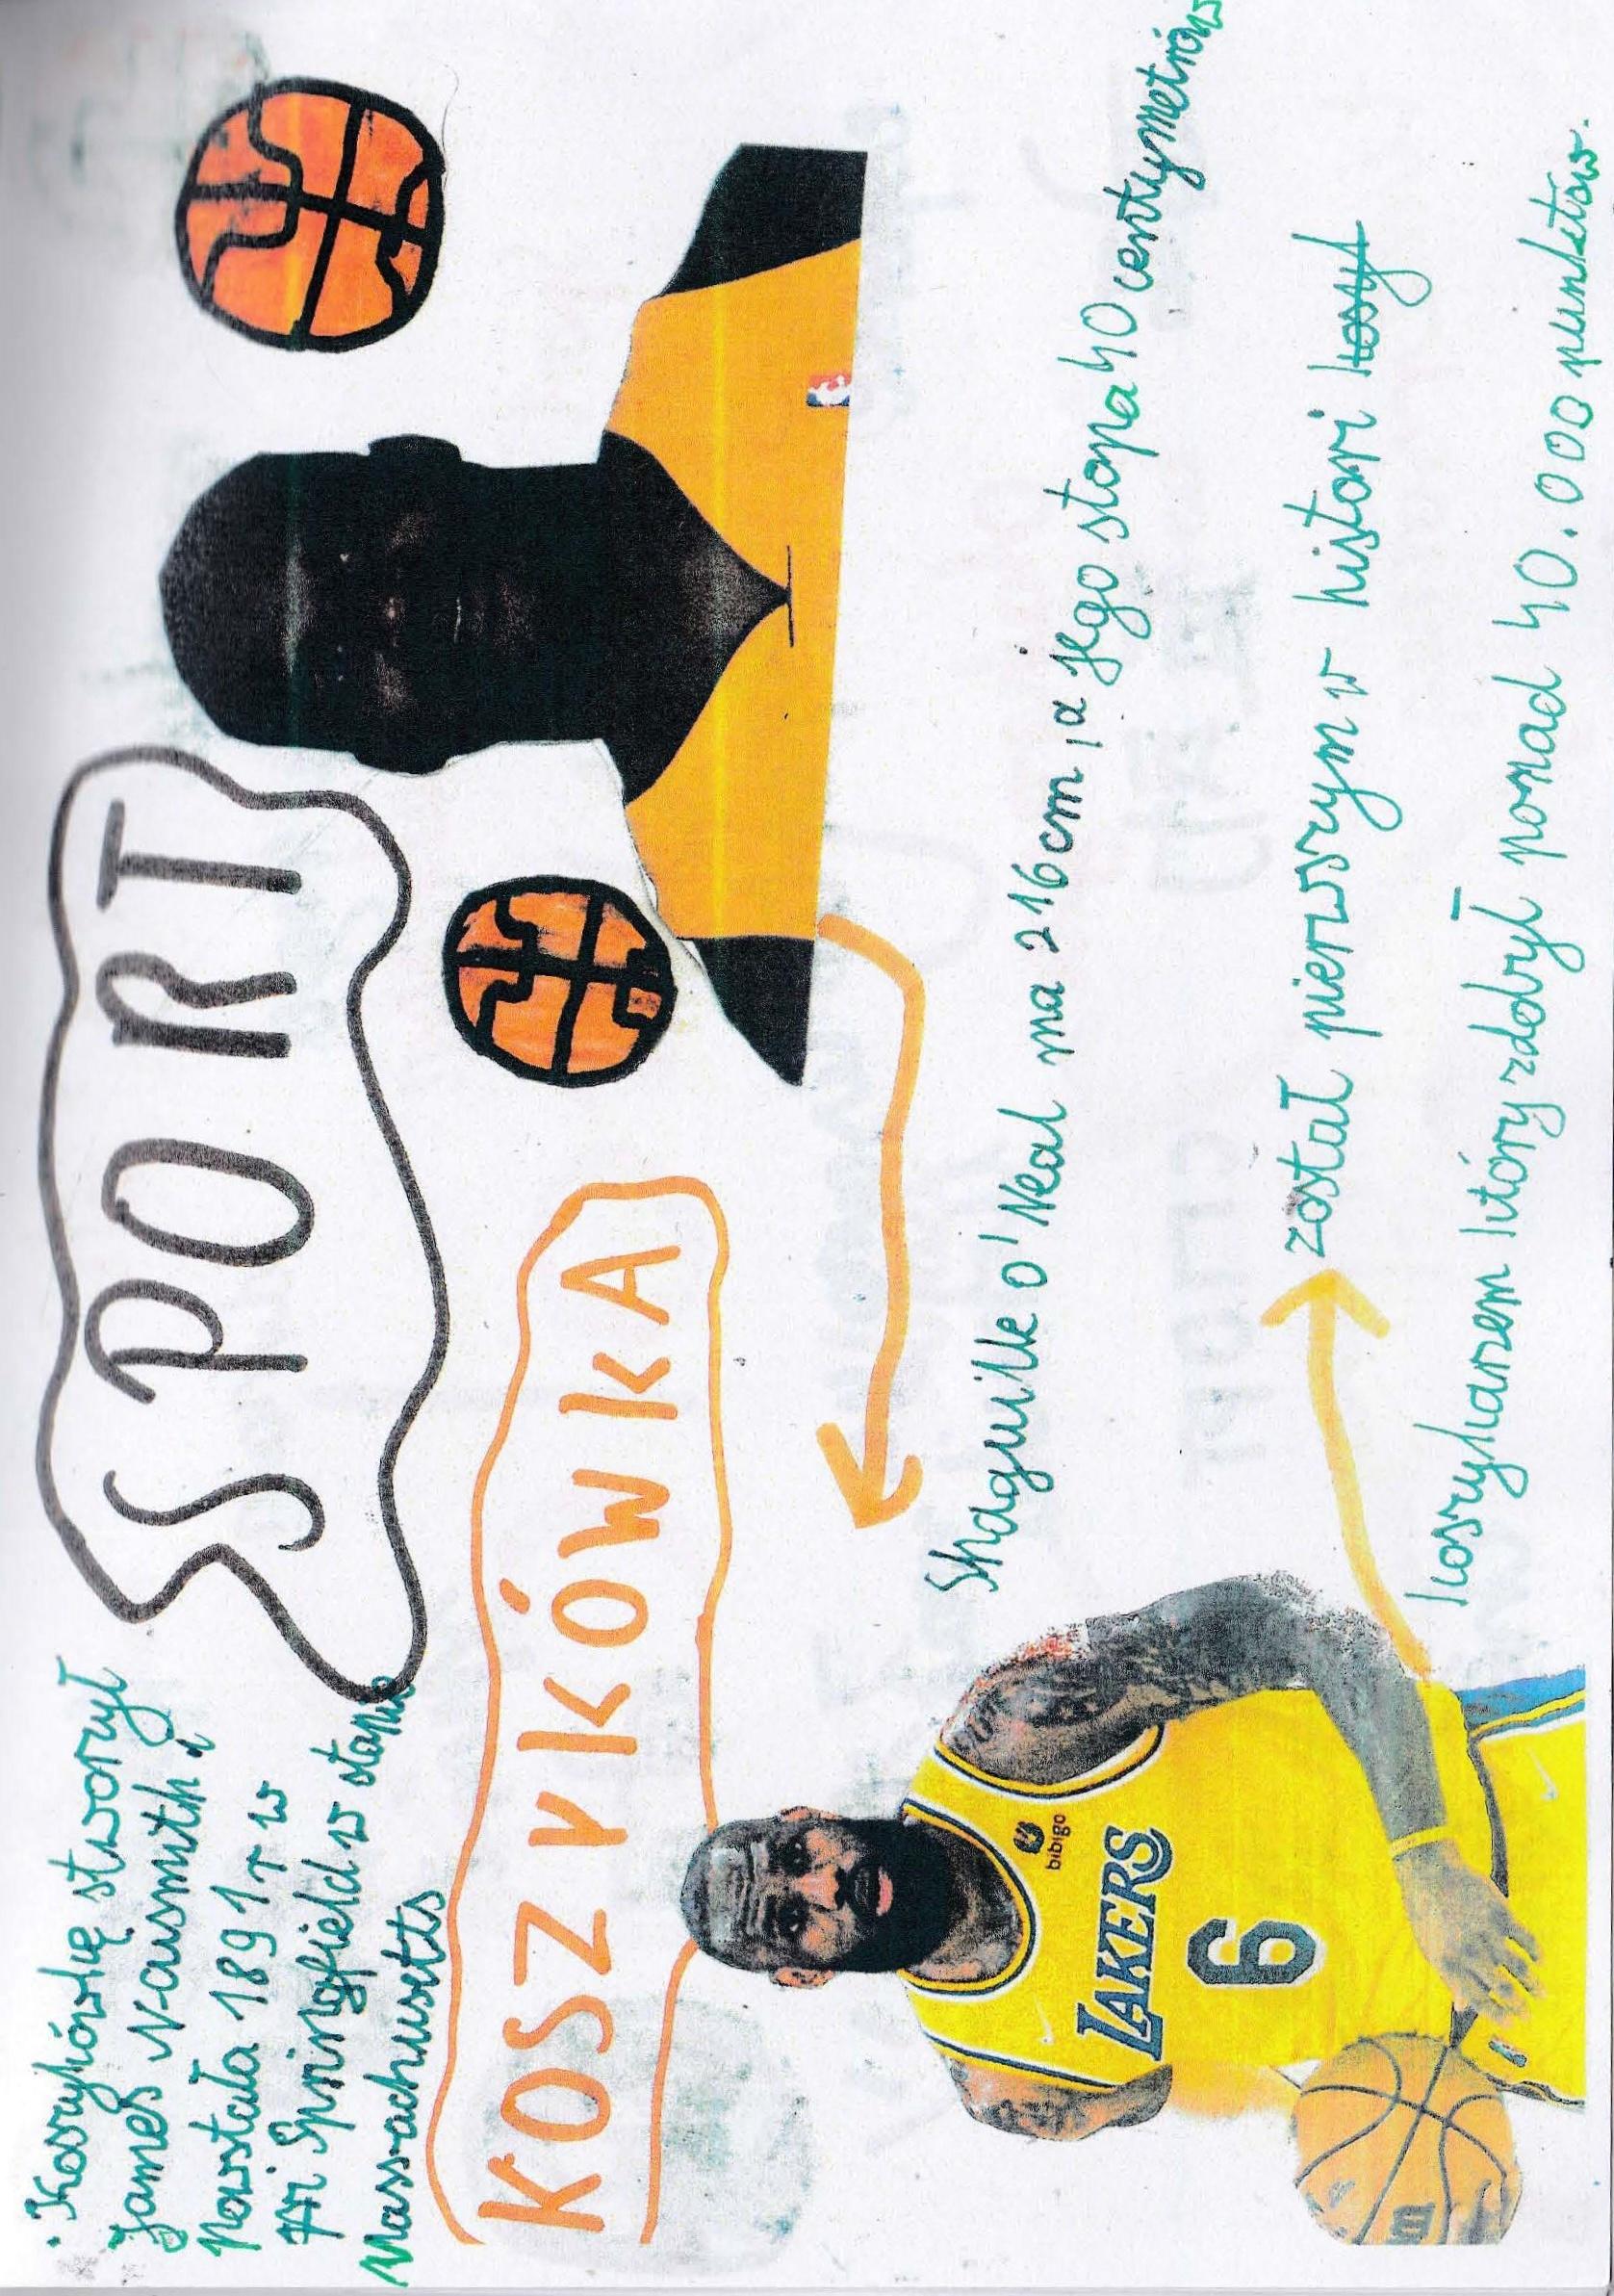 SPORT
· Koszykówkę stworzył
James Naismith i
Powstała 1891 r w
Springfield w stanie
Massachusetts
KOSZYKÓWKA
Shaquille O'Neal ma 216cm, a jego stopa 40 centymetrów
został pierwszym w histori koszy
koszykarzem który zdobył ponad 40.000 punktów.
bibigo
LAKERS
6